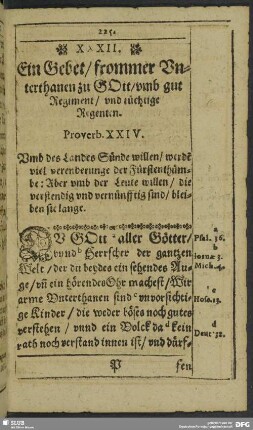 225.
XXXII.
Ein Gebet / frommer Vn-
terthanen zu GOtt / vmb gut
Regiment / vnd tüchtige
Regenten.
Proverb. XXIV.
Vmb des Landes Sünde willen / werdē
viel verenderunge der Fürstenthüm-
be: Aber vmb der Leute willen / die
verstendig vnd vernünfftig sind / blei-
ben sie lange.
DV GOtt a aller Götter /
vnnd b Herrscher der gantzen
Welt / der du beydes ein sehendes Au-
ge / vñ ein hörendes Ohr machest / Wir
arme Vnterthanen sind c vnvorsichti-
ge Kinder / die weder böses noch gutes
verstehen / vnnd ein Volck da d kein
rath noch verstand innen ist / vnd dürf-
P
sen
a
Psal.
b
Mich. 4.
c
Hose. 13.
d
Deut. 32.
SLUB